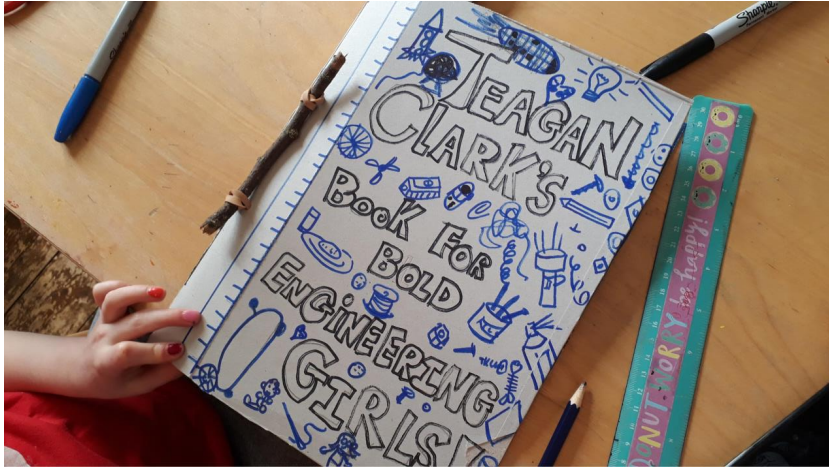 TEAGAN
CLARK'S
BOOK FOR
BOLD
ENGINEERING
GIRLS!
Sharpie
DONUT WORRY be happy!